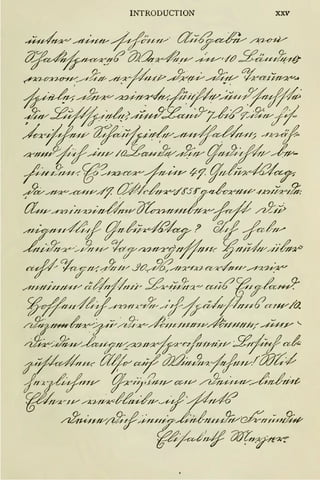 INTRODUCTION xxv
unter eine schöne Ausgabe von
Shakespeares Werken in 10 Bänden,
wovon die ersten drei die Trauer-
spiele; der vierte, fünfte und sechste
die Lustspiele; und Band 7 bis 9 die his-
torischen Schauspiele enthalten; wäh-
rend sich im 10. Bande die Gedichte be-
finden. Es war sein 49. Geburtstag,
da er am 17. Oktober 1858 geboren wurde.
Am wievielten November hast Du
eigentlich Geburtstag? Ich habe
leider den Tag vergessen. Heute über
acht Tage, den 30. ds, erwarten wir
meinen ältesten Bruder aus England.
Hoffentlich werde ich spätestens am 10.
Dezember zu Dir kommen können, um
Dir den lange versprochenen Besuch ab-
zustatten. Also auf Wiedersehen! Mit
herzlichen Grüssen an Deine lieben
Eltern verbleibe ich stets
Deine Dich innig liebende Freundin
Elisabeth Meyer.